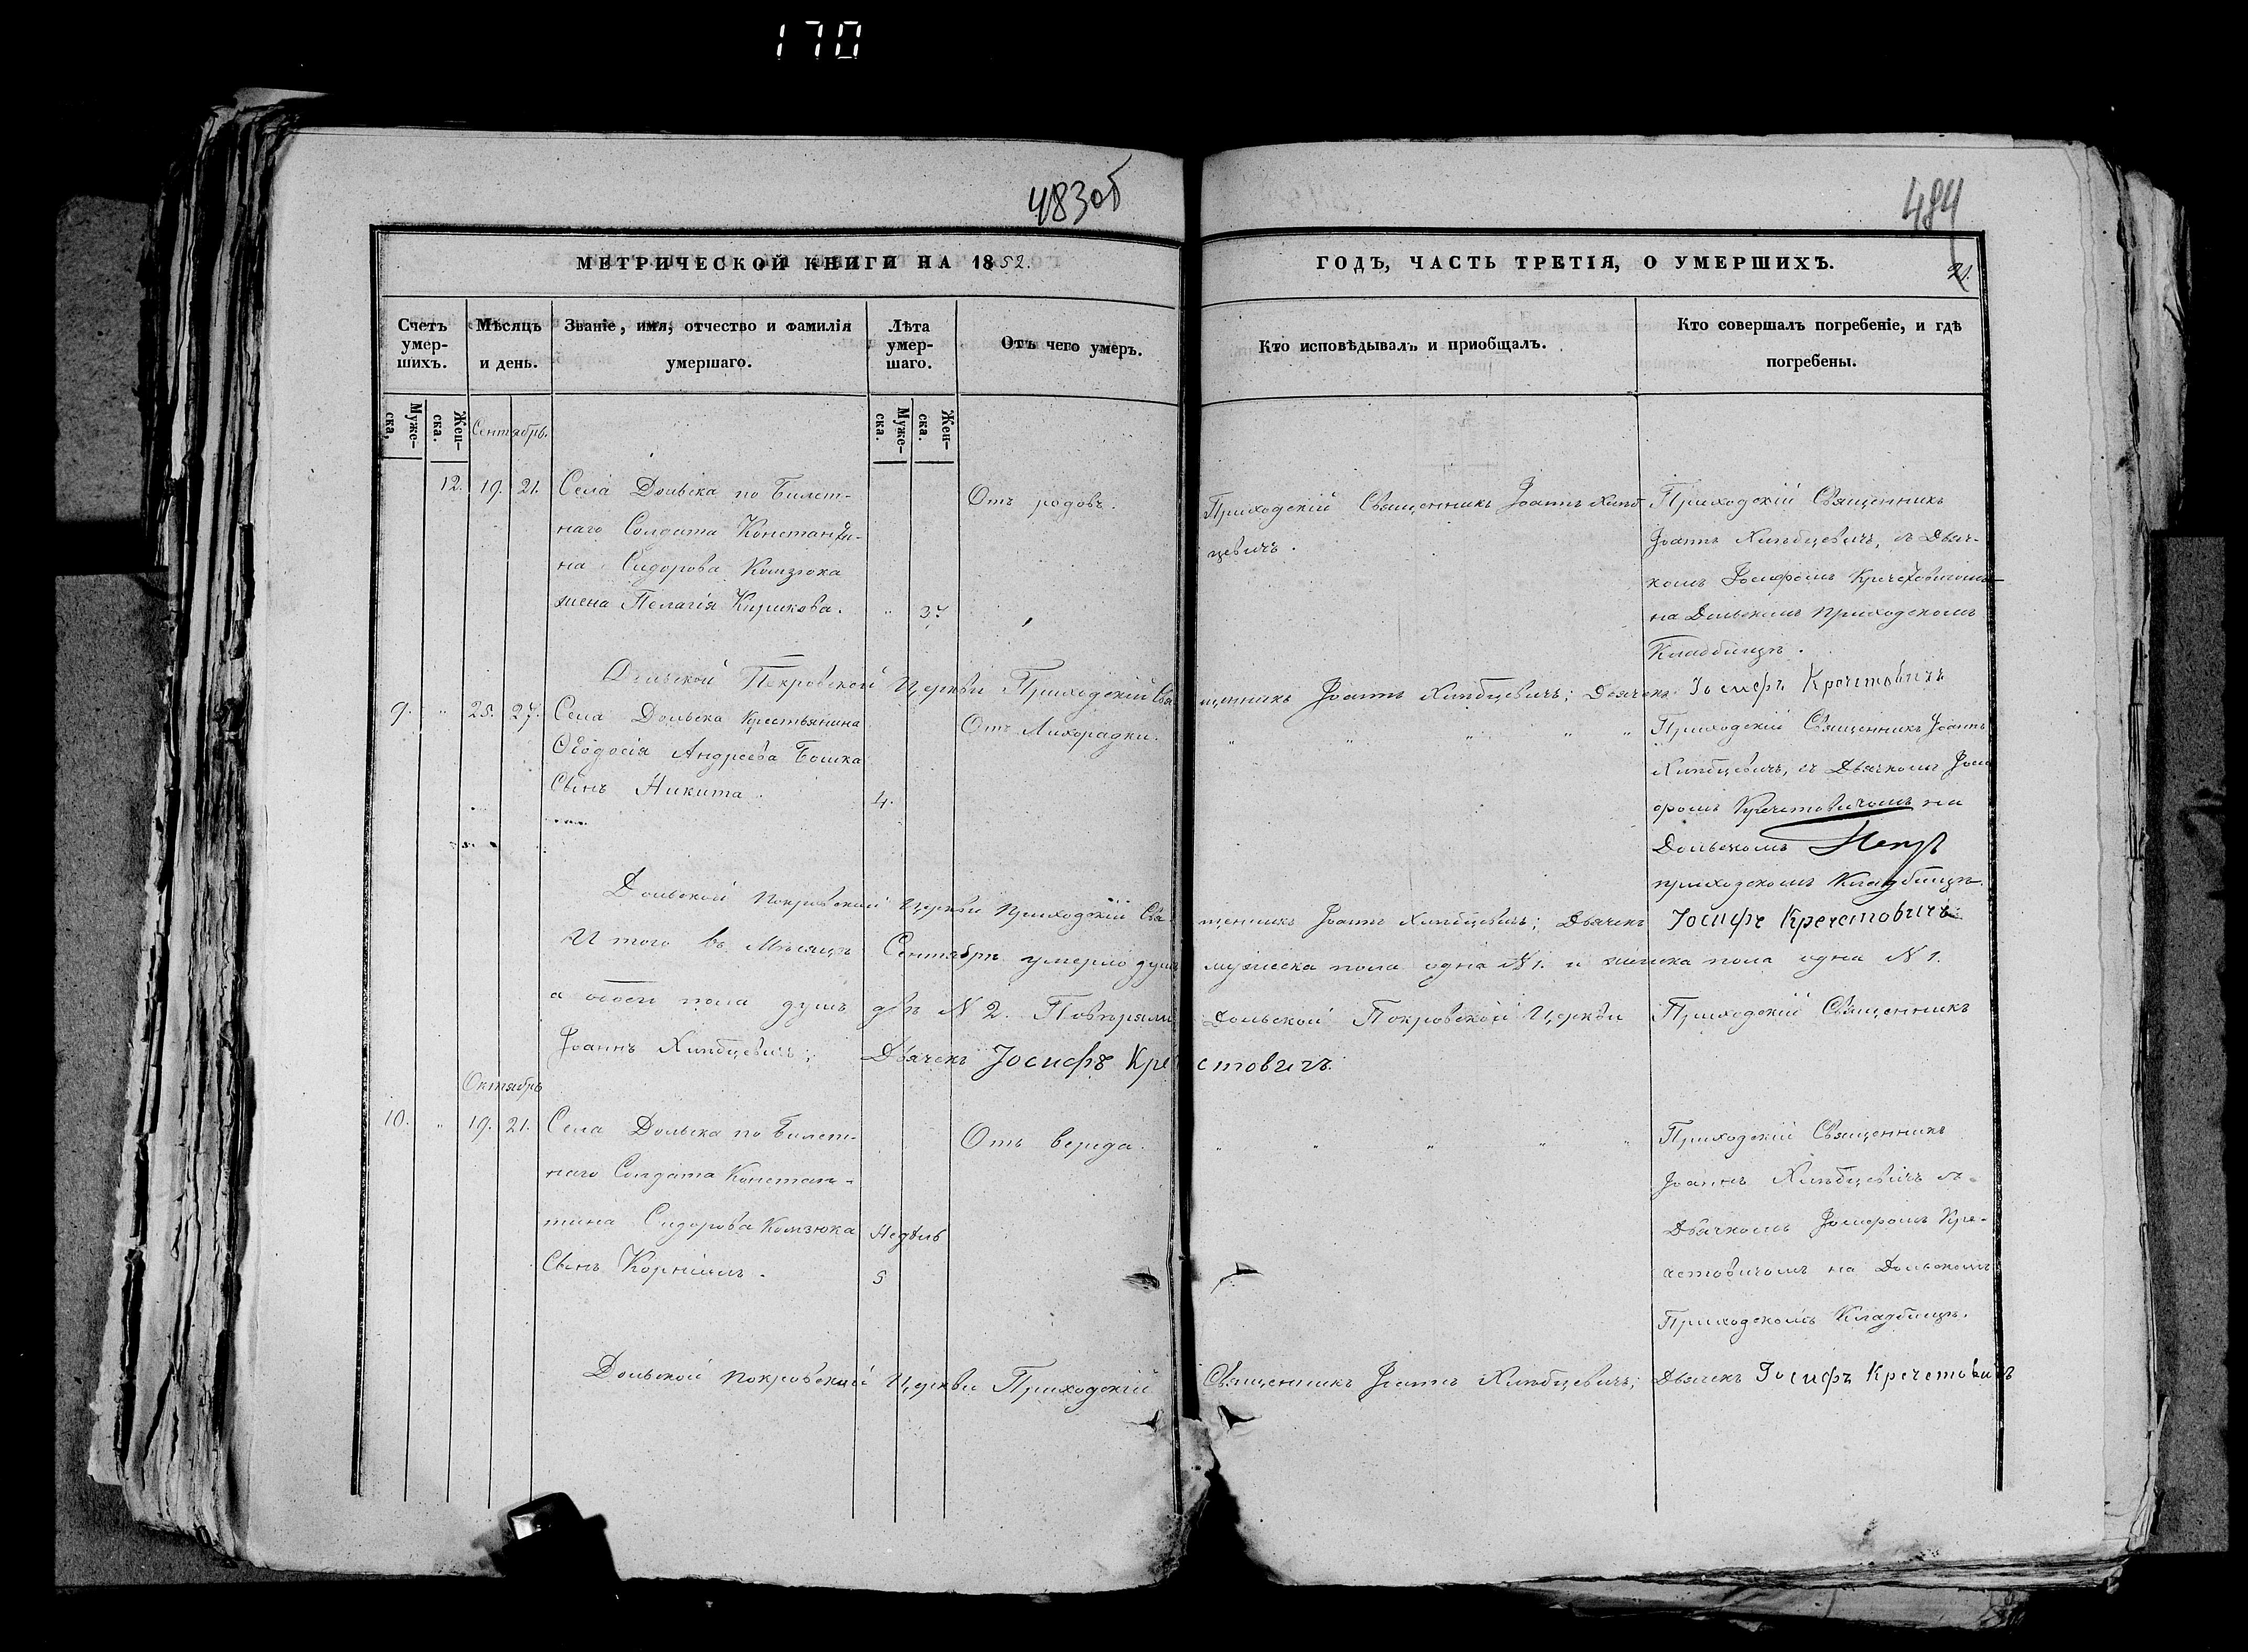 170
483об
484
МЕТРИЧЕСКОЙ КНИГИ НА 1852.
ГОДЪ, ЧАСТЬ ТРЕТІЯ, О УМЕРШИХЪ.
21.
Счетъ умер-шихъ.
Мѣсяцъ и день.
Званіе, имя, отчество и фамилія умершаго.
Лѣта умер-шаго.
Отъ чего умеръ.
Кто исповѣдывалъ и приобщалъ.
Кто совершалъ погребеніе, и гдѣ погребены.
Муже-ска,
Жен-ска.
Сентябрь.
Муже-ска.
Жен-ска.
12. 19. 21.
Села Дольска по Билет-
наго Солдата Константи-
на Сидорова Комзюка
жена Пелагія Кирикова.
" 37
Отъ родовъ.
Приходскій Священникъ Іоаннъ Хлѣб-
цевичъ.
Приходскій Священникъ
Іоаннъ Хлѣбцевичъ, съ Дьяч-
комъ Іосифомъ Кречетовичомъ
на Дольскомъ Приходскомъ
Кладбищѣ.
Дольской Покровской Церкви Приходскій Священникъ Іоаннъ Хлѣбцевичъ; Дьячекъ Іосифъ Кречетовичъ
9. " 25. 27.
Села Дольска Крестьянина
Ѳеодосія Андреева Бошка
Сынъ Никита.
4.
Отъ Лихорадки.
" " " " "
Приходскій Священникъ Іоаннъ
Хлѣбцевичъ, съ Дьячкомъ Іоси
фомъ Кречетовичомъ на
Дольскомъ
приходскомъ Кладбищѣ.
Дольской Покровской Церкви Приходскій Священникъ Іоаннъ Хлѣбцевичъ; Дьячекъ Іосифъ Кречетовичъ
Итого въ Мѣсяцѣ Сентябрѣ умерло душъ мужеска пола одна N 1. и женска пола одна N 1.
а обоего пола душъ двѣ N 2. Повѣряли Дольской Покровской Церкви Приходскій Священникъ
Іоаннъ Хлѣбцевичъ; Дьячекъ Іосифъ Кречетовичъ.
Октябрь
10. " 19. 21.
Села Дольска по Билет-
наго Солдата Констан-
тина Сидорова Комзюка
Сынъ Корнилій.
Недѣль
5
Отъ вереда.
" " " " "
Приходскій Священникъ
Іоаннъ Хлѣбцевичъ съ
Дьячкомъ Іосифомъ Кре-
четовичомъ на Дольскомъ
Приходскомъ Кладбищѣ.
Дольской Покровской Церкви Приходскій Священникъ Іоаннъ Хлѣбцевичъ; Дьячекъ Іосифъ Кречетовичъ